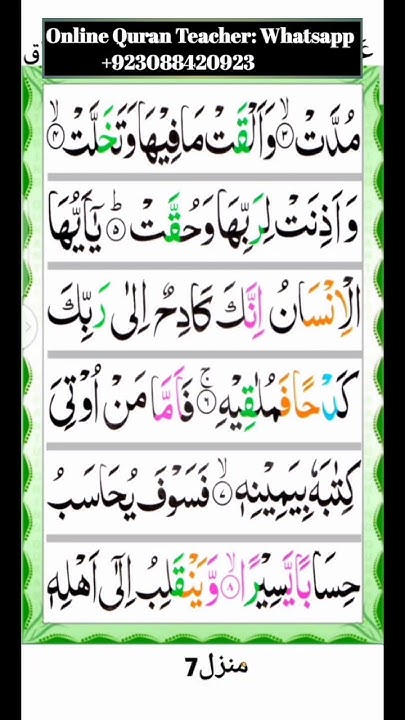 Online Quran Teacher: Whatsapp
+923088420923
مُدَّتْ ۙ‏﴿۳﴾ وَاَلْقَتْ مَا فِيْهَا وَتَخَلَّتْ ۙ‏﴿۴﴾
وَاَذِنَتْ لِرَبِّهَا وَحُقَّتْ ؕ‏﴿۵﴾ يٰۤاَيُّهَا
الْاِنْسَانُ اِنَّكَ كَادِحٌ اِلٰى رَبِّكَ
كَدْحًا فَمُلٰقِيْهِ ۚ‏﴿۶﴾ فَاَمَّا مَنْ اُوْتِىَ
كِتٰبَهٗ بِيَمِيْنِهٖ ۙ‏﴿۷﴾ فَسَوْفَ يُحَاسَبُ
حِسَابًا يَّسِيْرًا ۙ‏﴿۸﴾ وَّيَنْقَلِبُ اِلٰٓى اَهْلِهٖ
منزل7